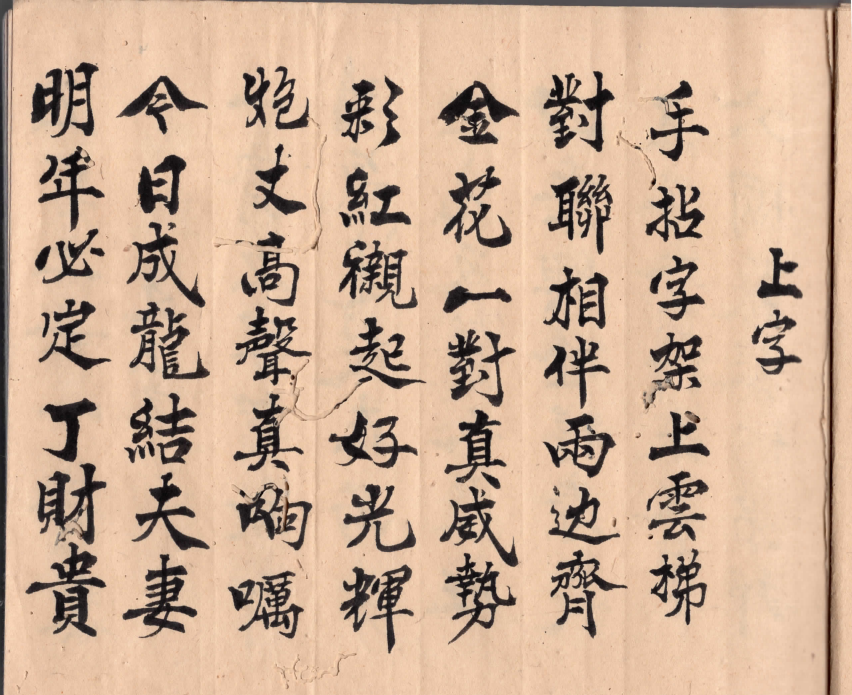 上字
手拈字架上雲梯
對聯相伴兩边齊
金花一對真威勢
彩紅襯起好光輝
炮丈高聲真嚮嚦
今日成龍結夫妻
明年必定丁財貴